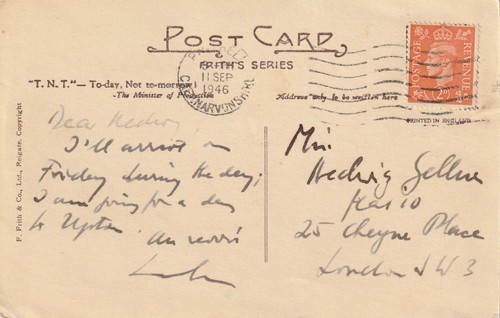 POST CARD
FRITH'S SERIES
"T.N.T."— To-day, Not to-morrow!
-The Minister of Production
Address only to be written here
11 SEP
1946
CAERNARVONSHIRE
POSTAGE
REVENUE
PRINTED IN ENGLAND
F. Frith & Co., Ltd., Reigate. Copyright
Dear Hedwig
I'll arrive on
Friday during the day;
I am going for a day
to Upton. Au revoir
Miss
Hedwig Gellner
25 Cheyne Place
London SW3